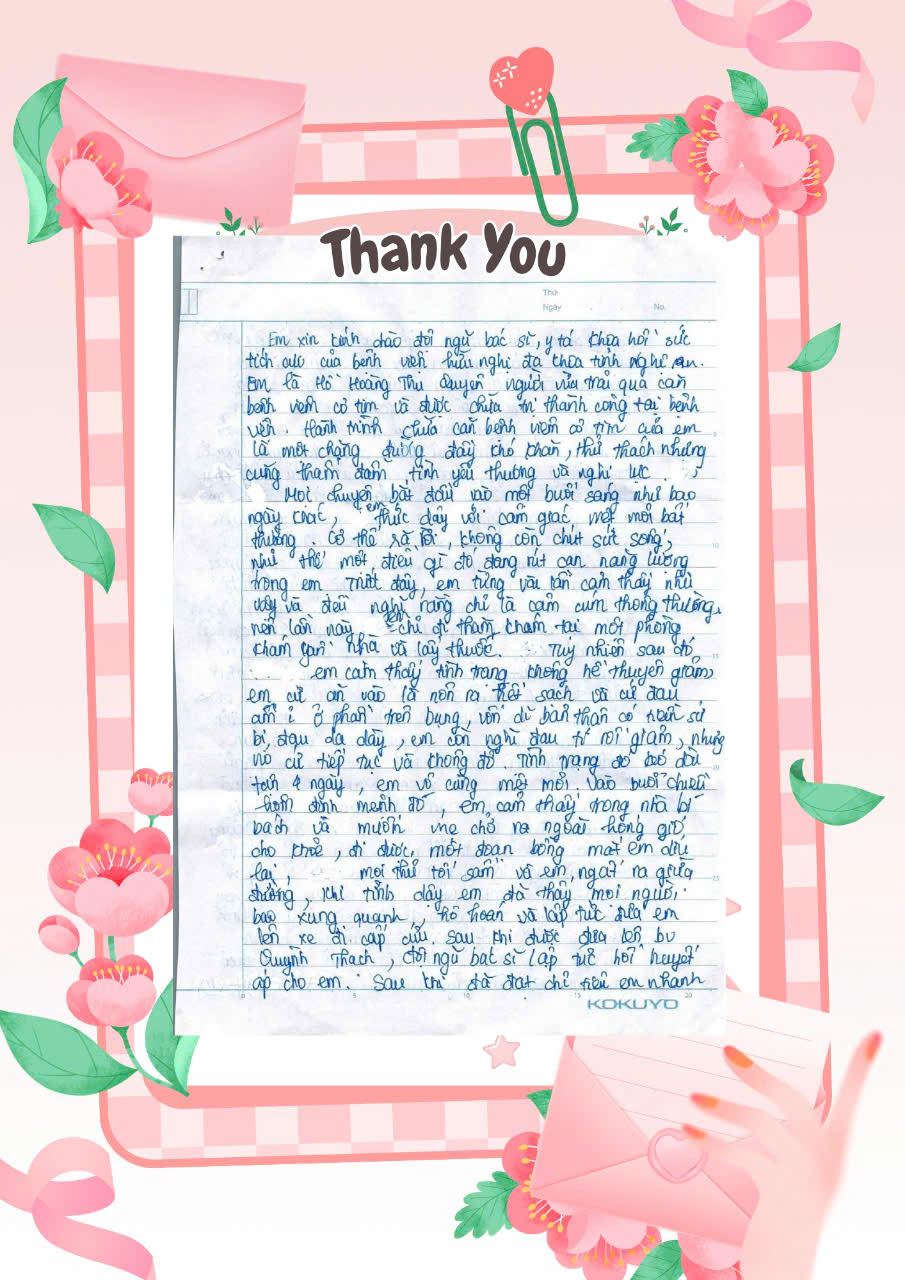 Thank You
Thứ
Ngày No.
Em xin kính chào đội ngũ bác sĩ, y tá khoa hồi sức
tích cực của bệnh viện hữu nghị đa khoa tỉnh nghệ an.
Em là Hồ Hoàng Thu Quyên người vừa trải qua căn
bệnh viêm cơ tim và được chữa trị thành công tại bệnh
viện. Hành trình chữa căn bệnh viêm cơ tim của em
là một chặng đường đầy khó khăn, thử thách nhưng
cũng thấm đẫm tình yêu thương và nghị lực.
Mọi chuyện bắt đầu vào một buổi sáng như bao
ngày khác, em thức dậy với cảm giác mệt mỏi bất
thường. Cơ thể rã rời, không còn chút sức sống,
như thể một điều gì đó đang rút cạn năng lượng
trong em. Trước đây, em từng vài lần cảm thấy như
vậy và đều nghĩ rằng chỉ là cảm cúm thông thường,
nên lần này em chỉ đi thăm khám tại một phòng
khám gần nhà và lấy thuốc. Tuy nhiên sau đó
em cảm thấy tình trạng không hề thuyên giảm,
em cứ ăn vào là nôn ra hết sạch và cứ đau
âm ỉ ở phần trên bụng, vốn dĩ bản thân có tiền sử
bị đau dạ dày, em còn nghĩ đau tí rồi giảm, nhưng
nó cứ tiếp tục và không đỡ. Tình trạng đó kéo dài
tới 4 ngày, em vô cùng mệt mỏi. Vào buổi chiều
hôm định mệnh đó, em cảm thấy trong nhà bí
bách và muốn mẹ chở ra ngoài hóng gió
cho khoẻ, đi được một đoạn bỗng mắt em dịu
lại, mọi thứ tối sầm và em ngất ra giữa
đường, khi tỉnh dậy em đã thấy mọi người
bao xung quanh, hô hoán và lập tức đưa em
lên xe đi cấp cứu. Sau khi được đưa tới bv
Quỳnh Thạch, đội ngũ bác sĩ lập tức hồi huyết
áp cho em. Sau khi đã đạt chỉ tiêu em nhanh
0 5 10 15 20
KOKUYO